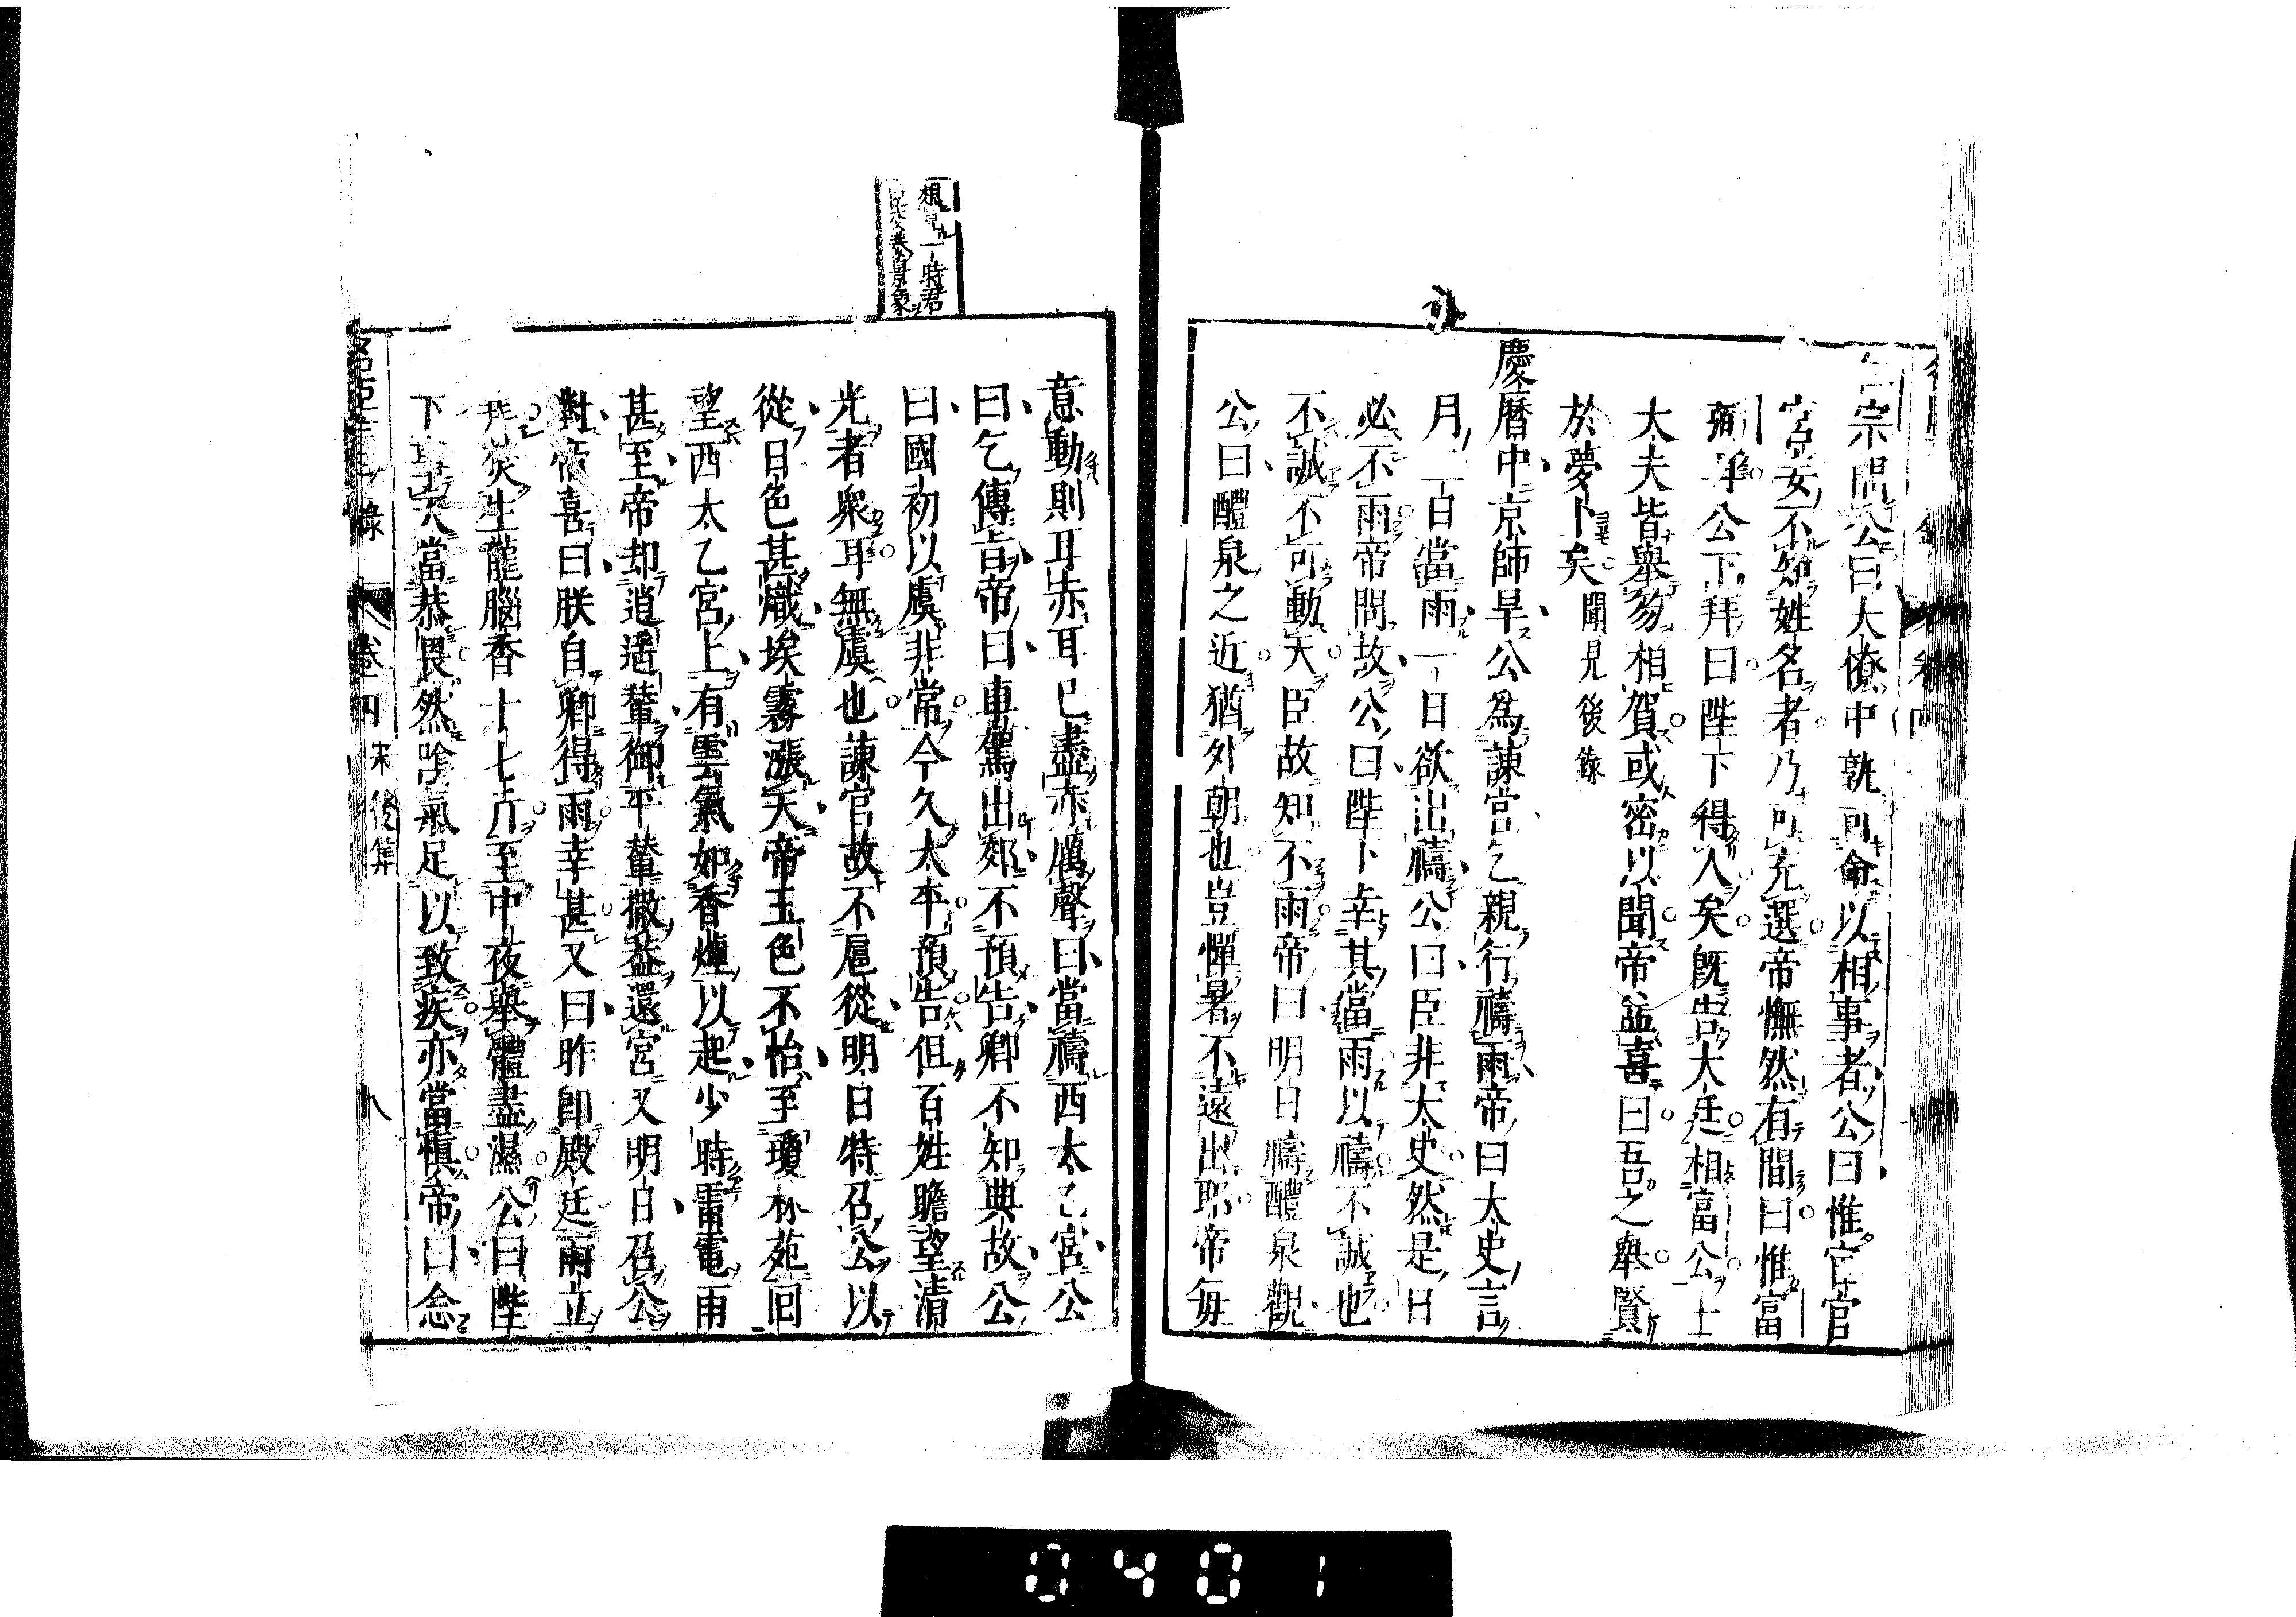 宗問公曰大僚中孰可命以相事者公曰惟宦官
宮妾不知姓名者乃可充選帝憮然有間曰惟富
弼公下拜曰陛下得人矣既告大廷相富公士
大夫皆舉笏相賀或密以聞帝益喜曰吾之舉賢
於夢卜矣聞見後錄
慶曆中京師旱公為諫官乞親行禱雨帝曰太史言
月二日當雨一日欲出禱公曰臣非太史然是日
必不雨帝問故公曰陛下幸其當雨以禱不誠也
不誠不可動天臣故知不雨帝曰明日禱醴泉觀
公曰醴泉之近猶外朝也豈憚暑不遠出耶帝每
想一時君
景象
意動則耳赤耳已盡赤厲聲曰當禱西太乙宮公
曰乞傳旨帝曰車駕出郊不預告卿不知典故公
曰國初以虞非常今久太平預告但百姓瞻望清
光者眾耳無虞也諫官故不扈從明日特召公以
從日色甚熾埃霧漲天帝玉色不怡至瓊林苑回
望西太乙宮上有雲氣如香煙以起少時雷電雨
甚至帝却逍遙輦御平輦撤蓋還宮又明日召公
對帝喜曰朕自卿得雨幸甚又曰昨即殿廷雨立
拜焚生龍腦香十七斤至中夜舉體盡濕公曰陛
下事天當恭畏然陰氣足以致疾亦當慎帝曰念
錄 卷四 宋後集 八
0401